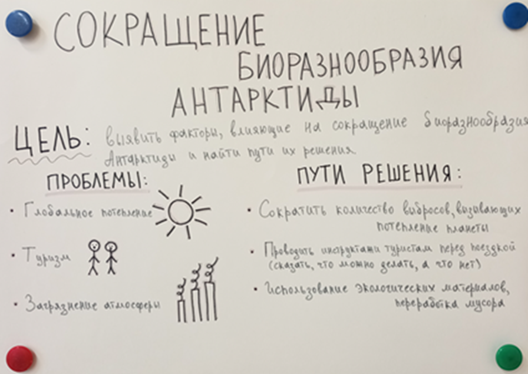 СОКРАЩЕНИЕ
БИОРАЗНООБРАЗИЯ
АНТАРКТИДЫ
ЦЕЛЬ: выявить факторы, влияющие на сокращение биоразнообразия
Антарктиды и найти пути их решения
ПРОБЛЕМЫ:
• Глобальное потепление
• Туризм
• Загрязнение атмосферы
ПУТИ РЕШЕНИЯ:
• Сократить количество выбросов, вызывающих
потепление планеты
• Проводить инструктажи туристам перед поездкой
(сказать, что можно делать, а что нет)
• Использование экологических материалов,
переработка мусора